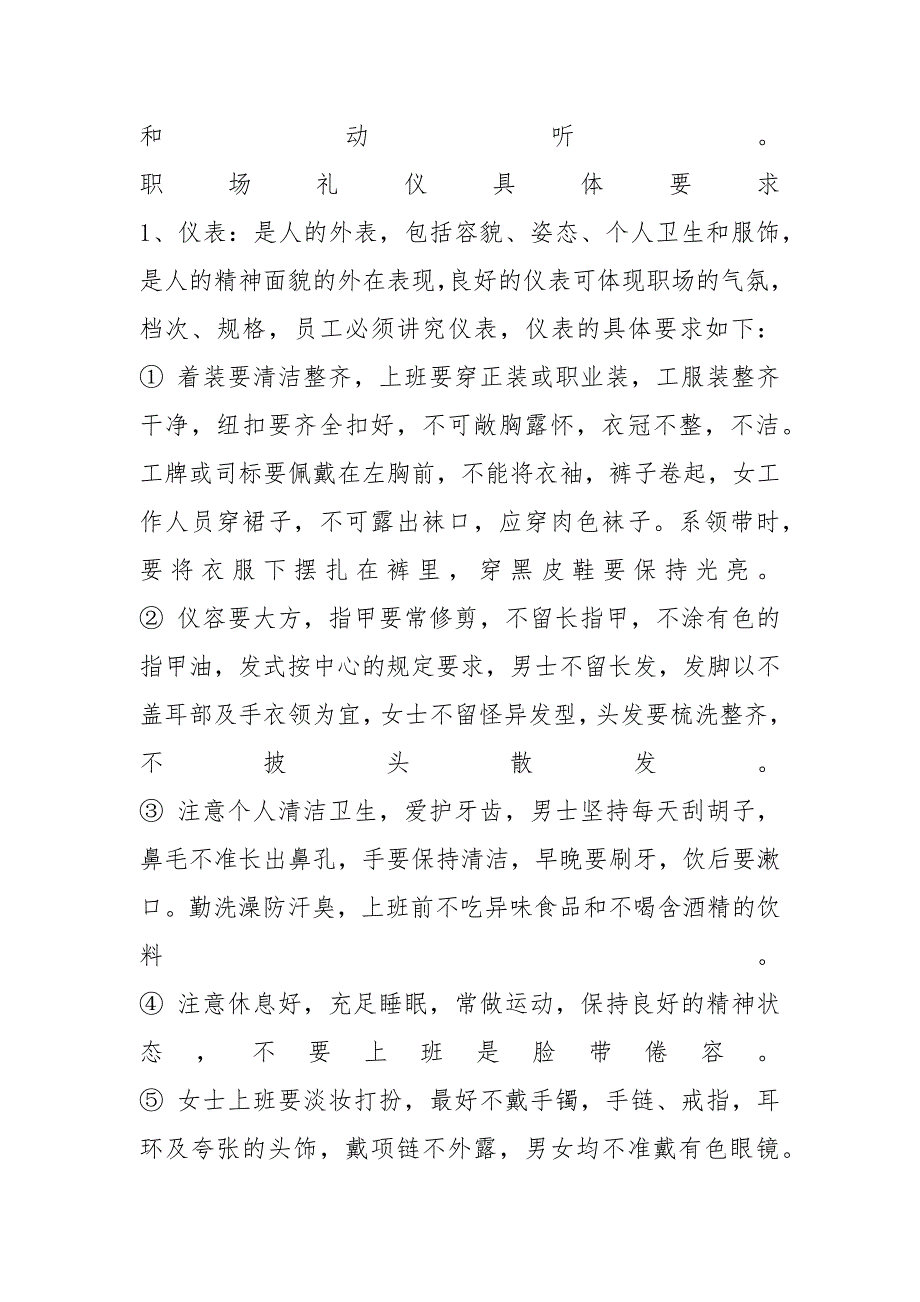 和动听。
职场礼仪具体要求
1、仪表：是人的外表，包括容貌、姿态、个人卫生和服饰，
是人的精神面貌的外在表现，良好的仪表可体现职场的气氛，
档次、规格，员工必须讲究仪表，仪表的具体要求如下：
① 着装要清洁整齐，上班要穿正装或职业装，工服装整齐
干净，纽扣要齐全扣好，不可敞胸露怀，衣冠不整，不洁。
工牌或司标要佩戴在左胸前，不能将衣袖，裤子卷起，女工
作人员穿裙子，不可露出袜口，应穿肉色袜子。系领带时，
要将衣服下摆扎在裤里，穿黑皮鞋要保持光亮。
② 仪容要大方，指甲要常修剪，不留长指甲，不涂有色的
指甲油，发式按中心的规定要求，男士不留长发，发脚以不
盖耳部及手衣领为宜，女士不留怪异发型，头发要梳洗整齐，
不披头散发。
③ 注意个人清洁卫生，爱护牙齿，男士坚持每天刮胡子，
鼻毛不准长出鼻孔，手要保持清洁，早晚要刷牙，饮后要漱
口。勤洗澡防汗臭，上班前不吃异味食品和不喝含酒精的饮
料。
④ 注意休息好，充足睡眠，常做运动，保持良好的精神状
态，不要上班是脸带倦容。
⑤ 女士上班要淡妆打扮，最好不戴手镯，手链、戒指，耳
环及夸张的头饰，戴项链不外露，男女均不准戴有色眼镜。